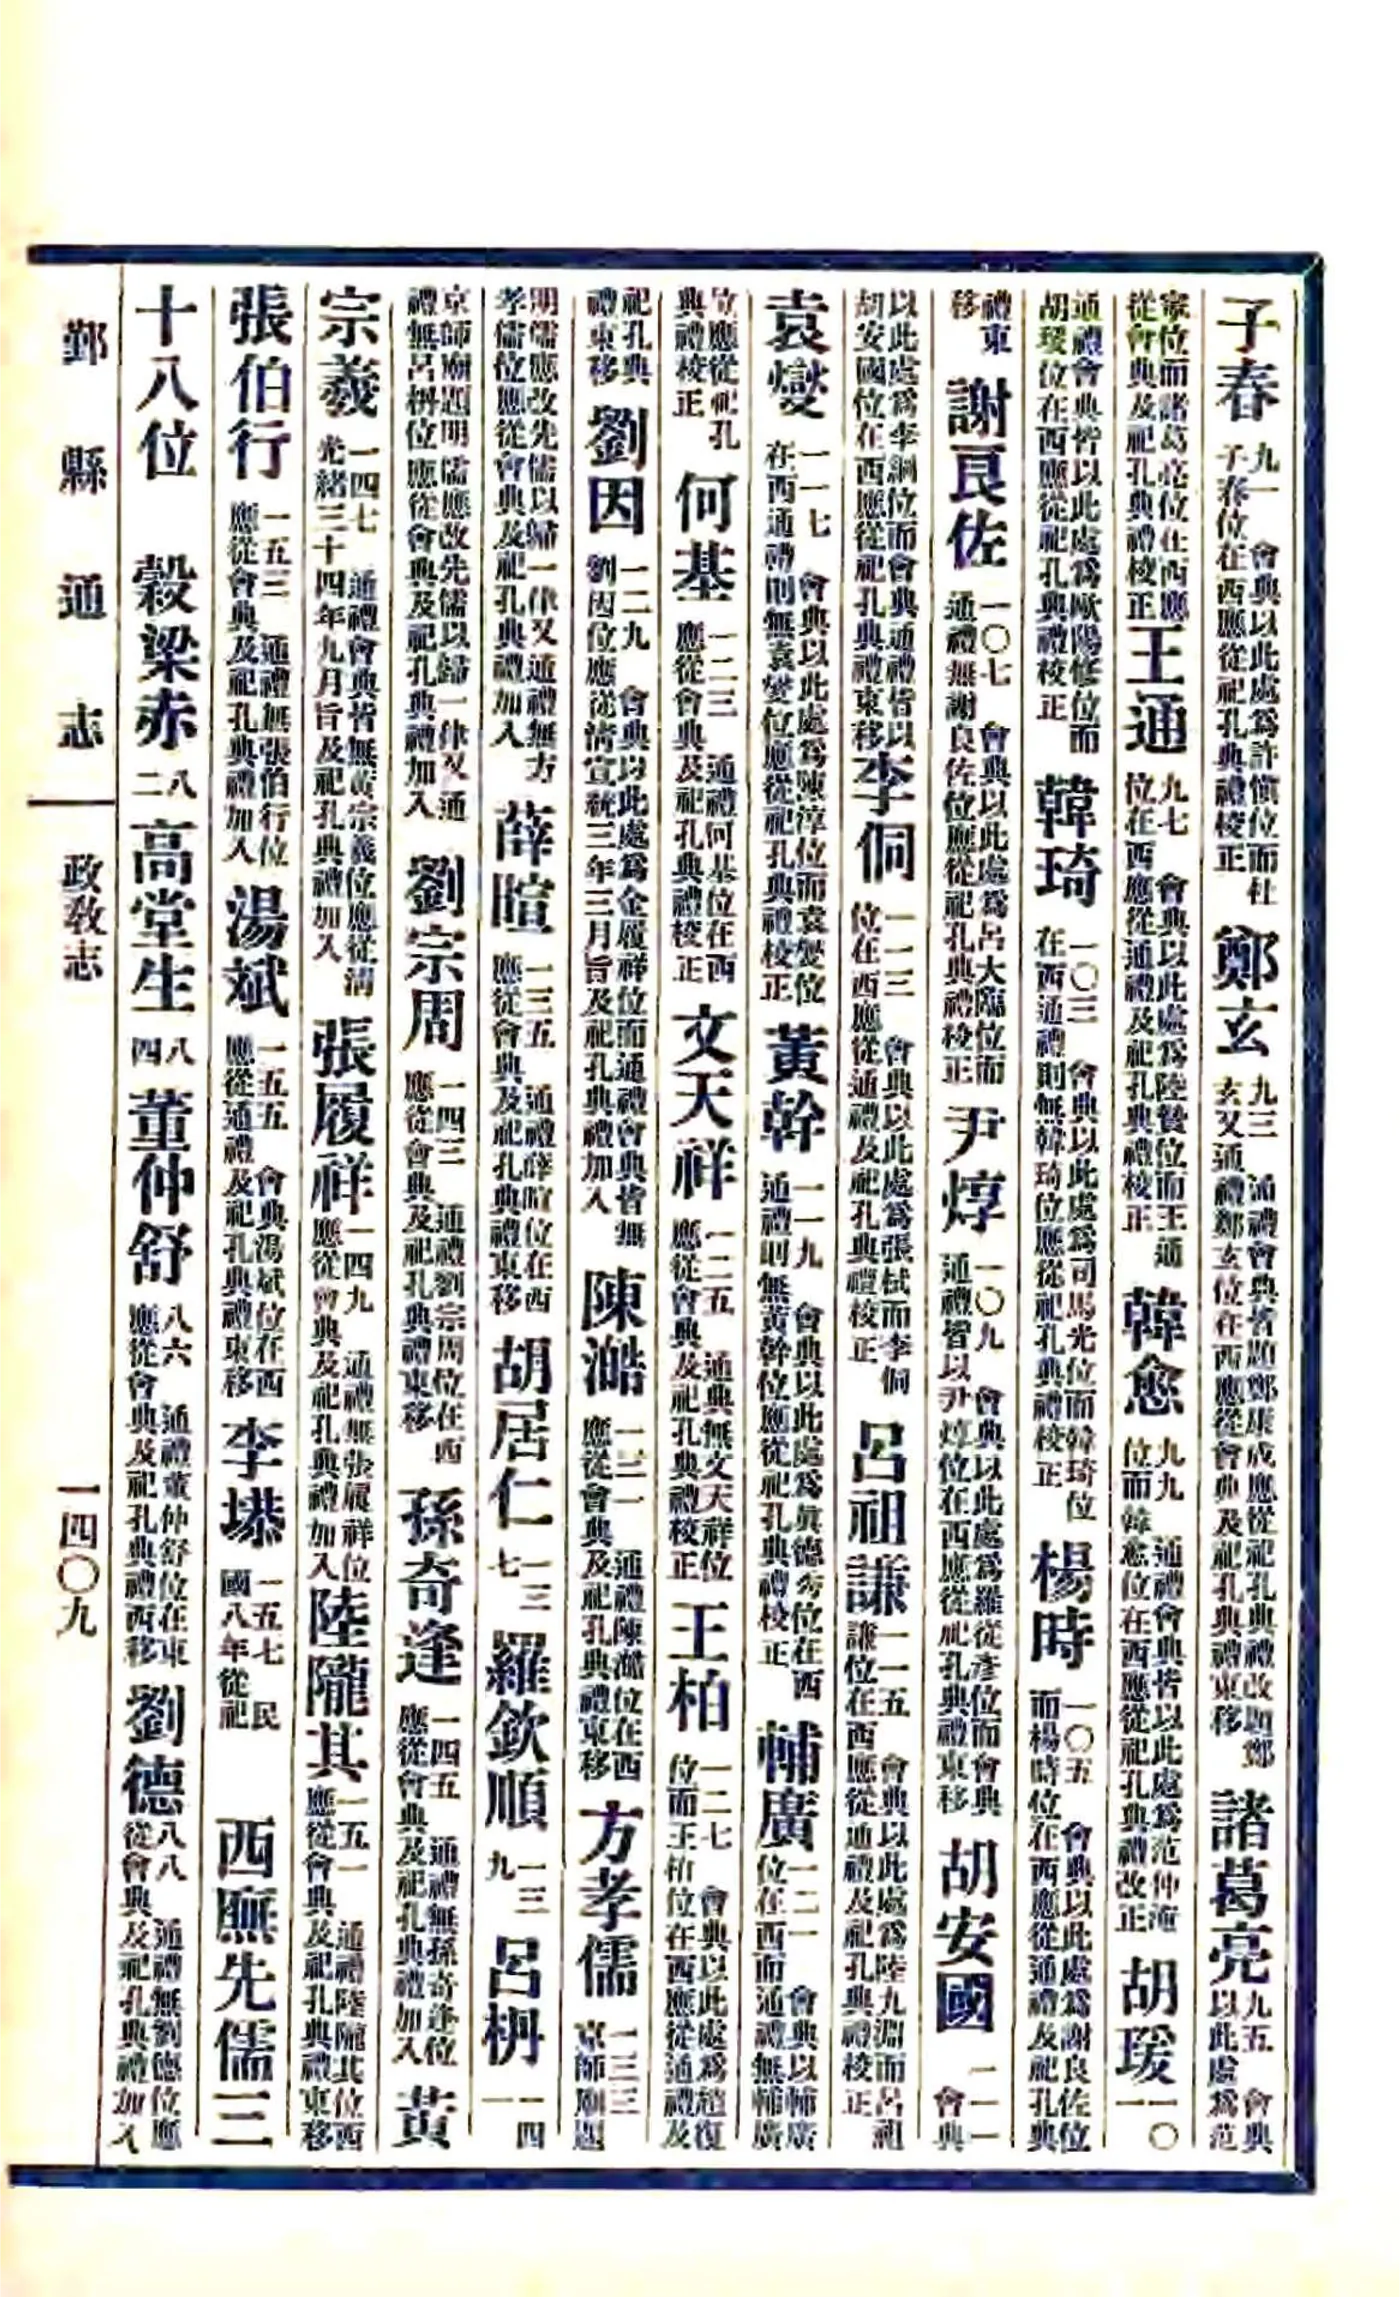 子春 九一 會典以此處爲許愼位而杜子春位在西應從祀孔典禮校正 鄭玄 九三 通禮會典皆題鄭康成應從祀孔典禮改題鄭玄又通禮鄭玄位在西應從會典及祀孔典禮東移 諸葛亮 九五 會典以此處爲范
甯位而諸葛亮位在西應從會典及祀孔典禮校正 王通 九七 會典以此處爲陸贄位而王通位在西應從通禮及祀孔典禮校正 韓愈 九九 通禮會典皆以此處爲范仲淹位而韓愈位在西應從祀孔典禮改正 胡瑗 一〇一
通禮會典皆以此處爲歐陽修位而胡瑗位在西應從祀孔典禮校正 韓琦 一〇三 會典以此處爲司馬光位而韓琦位在西通禮則無韓琦位應從祀孔典禮校正 楊時 一〇五 會典以此處爲謝良佐位而楊時位在西應從通禮及祀孔典
禮東移 謝良佐 一〇七 會典以此處爲呂大臨位而通禮無謝良佐位應從祀孔典禮校正 尹焞 一〇九 會典以此處爲羅從彥位而會典通禮皆以尹焞位在西應從祀孔典禮東移 胡安國 一一一 會典
以此處爲李綱位而會典通禮皆以胡安國位在西應從祀孔典禮東移 李侗 一一三 會典以此處爲張栻而李侗位在西應從通禮及祀孔典禮校正 呂祖謙 一一五 會典以此處爲陸九淵而呂祖謙位在西應從通禮及祀孔典禮校正
袁燮 一一七 會典以此處爲陳淳位而袁燮位在西通禮則無袁燮位應從祀孔典禮校正 黃幹 一一九 會典以此處爲眞德秀位在西通禮則無黃幹位應從祀孔典禮校正 輔廣 一二一 會典以輔廣位在西而通禮無輔廣
位應從祀孔典禮校正 何基 一二三 通禮何基位在西應從會典及祀孔典禮校正 文天祥 一二五 通典無文天祥位應從會典及祀孔典禮校正 王柏 一二七 會典以此處爲趙復位而王柏位在西應從通禮及
祀孔典禮東移 劉因 一二九 會典以此處爲金履祥位而通禮會典皆無劉因位應從淸宣統三年三月旨及祀孔典禮加入 陳澔 一三一 通禮陳澔位在西應從會典及祀孔典禮東移 方孝儒 一三三 京師廟題
明儒應改先儒以歸一律又通禮無方孝儒位應從會典及祀孔典禮加入 薛暄 一三五 通禮薛暄位在西應從會典及祀孔典禮東移 胡居仁 一三七 羅欽順 一三九 呂枬 一四一
京師廟題明儒應改先儒以歸一律又通禮無呂枬位應從會典及祀孔典禮加入 劉宗周 一四三 通禮劉宗周位在西應從會典及祀孔典禮東移 孫奇逢 一四五 通禮無孫奇逢位應從會典及祀孔典禮加入 黃
宗羲 一四七 通禮會典皆無黃宗羲位應從淸光緒三十四年九月旨及祀孔典禮加入 張履祥 一四九 通禮無張履祥位應從會典及祀孔典禮加入 陸隴其 一五一 通禮陸隴其位西應從會典及祀孔典禮東移
張伯行 一五三 通禮無張伯行位應從會典及祀孔典禮加入 湯斌 一五五 會典湯斌位在西應從通禮及祀孔典禮東移 李塨 一五七 民國八年從祀 西廡先儒三
十八位 穀梁赤 八二 高堂生 八四 董仲舒 八六 通禮董仲舒位在東應從會典及祀孔典禮西移 劉德 八八 通禮無劉德位應從會典及祀孔典禮加入
鄞縣通志 政敎志 一四〇九